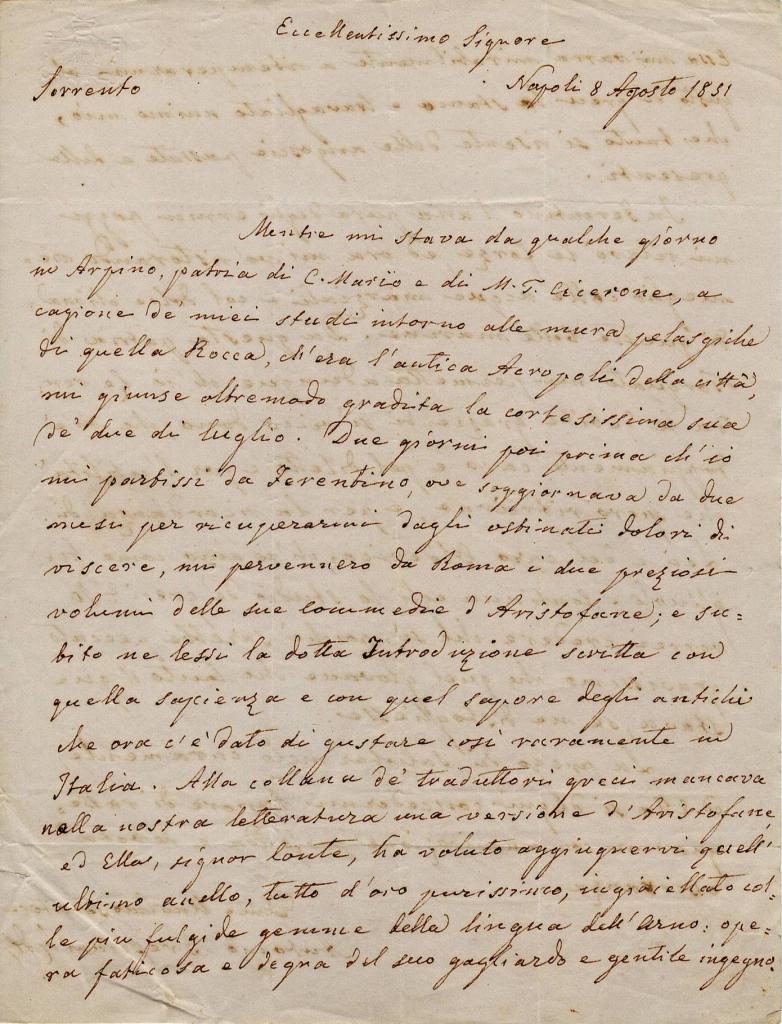 Eccellentissimo Signore
Sorrento
Napoli 8 Agosto 1851
Mentre mi stava da qualche giorno
in Arpino, patria di C. Mario e di M. T. Cicerone, a
cagione de' miei studi intorno alle mura pelasgiche
di quella Rocca, ch'era l'antica Acropoli della città,
mi giunse oltremodo gradita la cortesissima sua
de' due di luglio. Due giorni poi prima ch'io
mi partissi da Ferentino, ove soggiornava da due
mesi per ricuperarmi dagli ostinati dolori di
viscere, mi pervennero da Roma i due preziosi
volumi delle sue Commedie d'Aristofane; e su=
bito ne lessi la dotta Introduzione scritta con
quella sapienza e con quel sapore degli antichi
che ora c'è dato di gustare così raramente in
Italia. Alla collana de' traduttori greci mancava
nella nostra letteratura una versione d'Aristofane,
ed Ella, signor Conte, ha voluto aggiugnervi quell'
ultimo anello, tutto d'oro purissimo, ingioiellato col=
le più fulgide gemme della lingua dell'Arno: ope=
ra faticosa e degna del suo gagliardo e gentile ingegno.